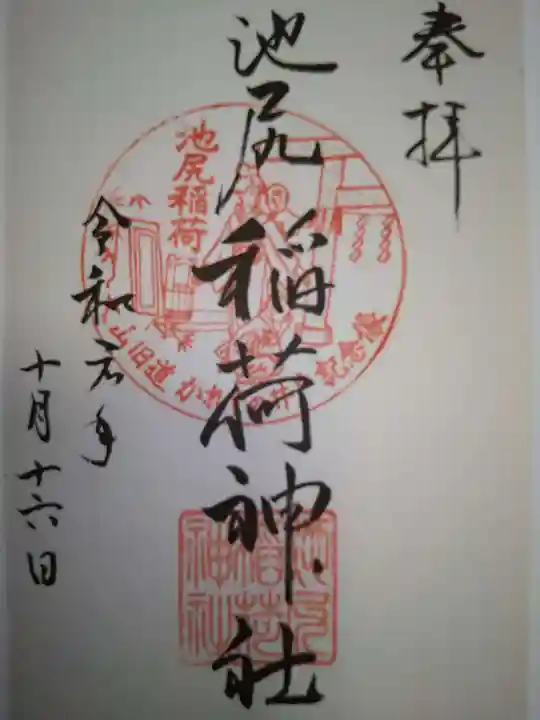 奉拝
池尻稲荷神社
令和元年
十月十六日
池尻稲荷
山旧道 かれ
記念
池尻
稲荷
神社